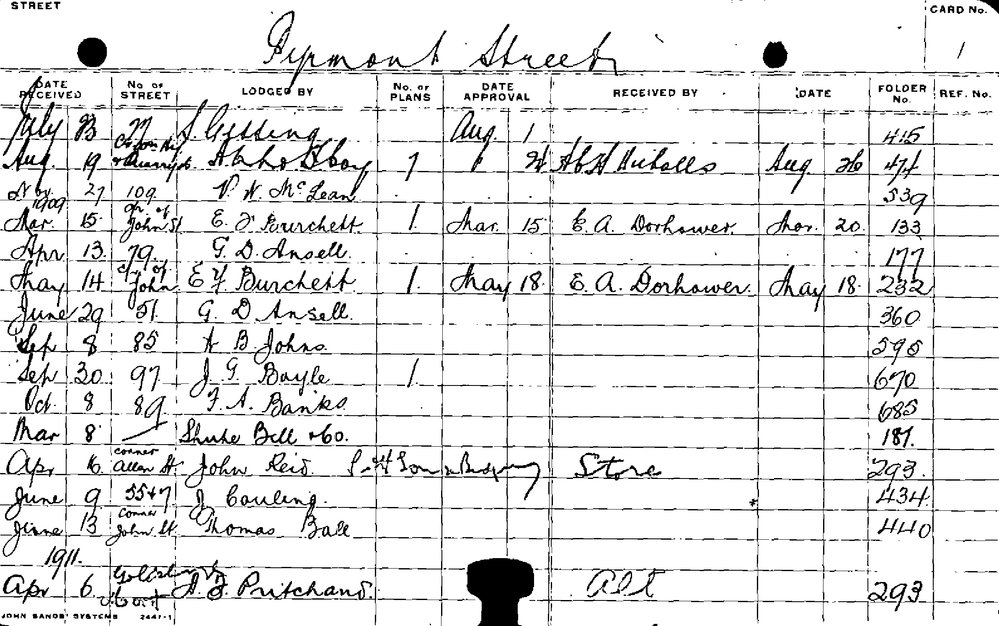 STREET CARD No.
Pyrmont Street 1
DATE RECEIVED No. OF STREET LODGED BY No. OF PLANS DATE APPROVAL RECEIVED BY DATE FOLDER No. REF. No.
July 23 77 S. Gissing Aug 1 415
Aug. 19 1 " 24 A. H. Nicholls Aug 26 474
Nov. 27 109 W. McLean 539
1909
Mar. 15 Cr. of John St E. J. Burchett 1. Mar. 15 E. A. Dorhower Mar. 20. 133
Apr 13 79 G. D. Ansell. 177
May 14 Cr of John E Y Burchett 1. May 18. E. A. Dorhower. May 18. 232
June 29 51. G. D. Ansell. 360
Sep 8 85 A B Johns 595
Sep 30. 97 J. G. Boyle 1. 670
Oct. 8 89 F. A. Banks 685
Mar 8 — Bell & Co. 187.
Apr 16 corner Allen St. John Reid. Store 293.
June 9 55+7 J Cowling. 434
June 13 corner John St. Thomas Ball 440
1911.
Apr 6. A. F. Pritchard. Alt 293
JOHN SANDS' SYSTEMS 2441-1